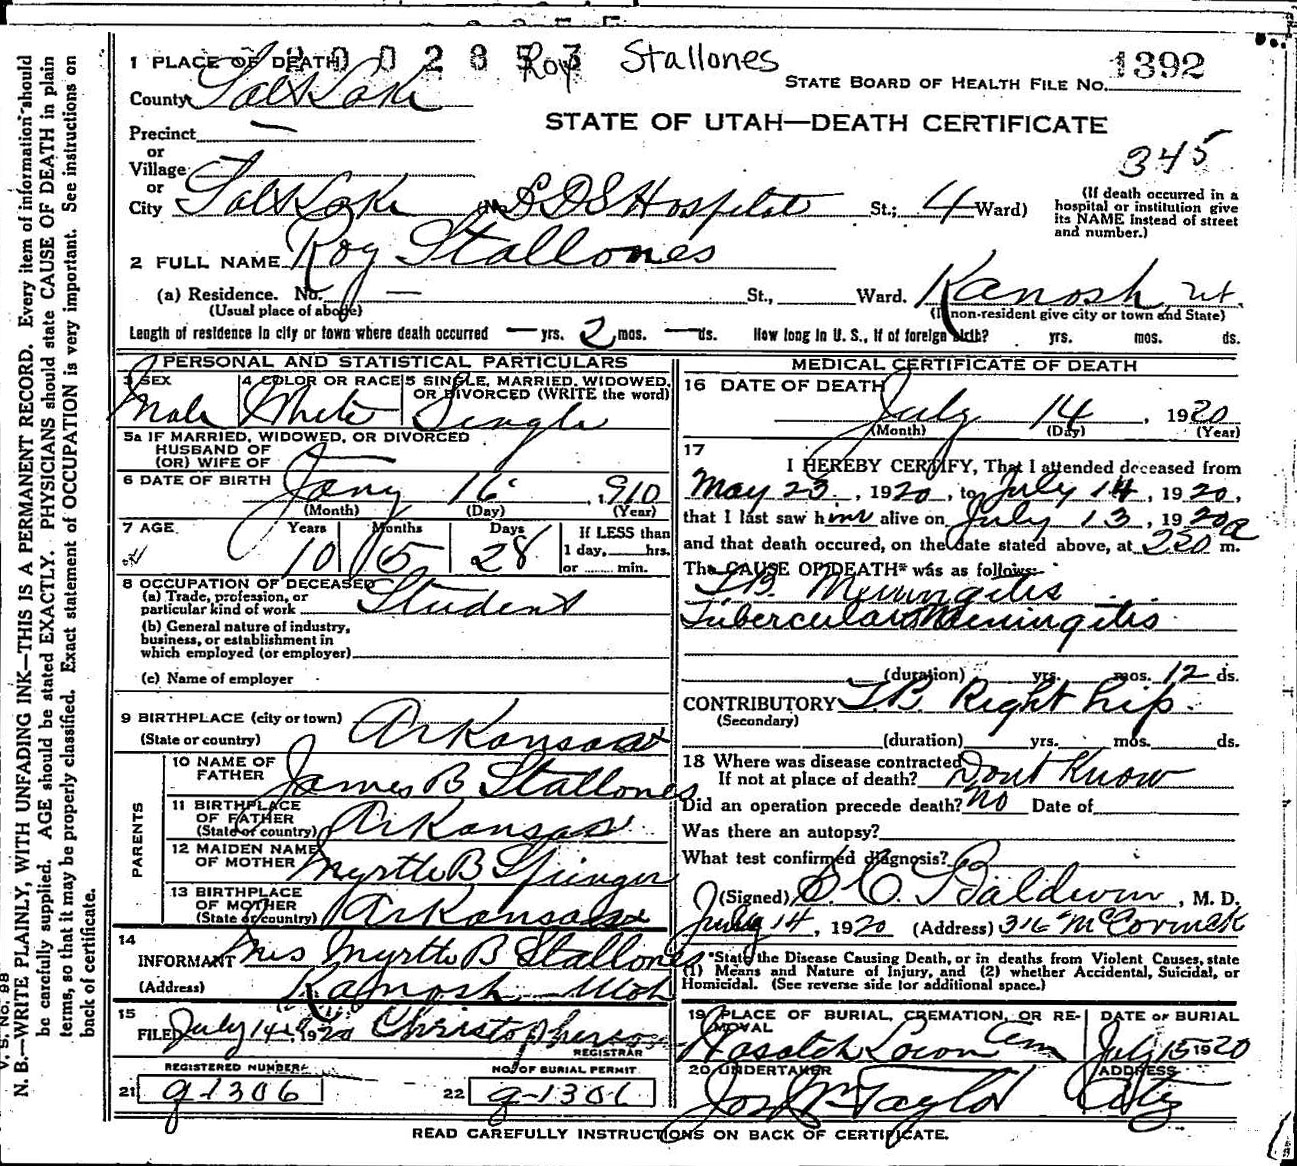 2002853
Roy Stallones
1 PLACE OF DEATH
STATE BOARD OF HEALTH FILE NO. 1392
County Salt Lake
STATE OF UTAH—DEATH CERTIFICATE
Precinct —
or
Village
or
345
City Salt Lake (No. LDS Hospital St.; 4 Ward)
(If death occurred in a hospital or institution give its NAME instead of street and number.)
2 FULL NAME Roy Stallones
(a) Residence. No. — St., Ward. Kanosh, Ut.
(Usual place of abode) (If non-resident give city or town and State)
Length of residence in city or town where death occurred — yrs. 2 mos. — ds. How long in U. S., if of foreign birth? yrs. mos. ds.
PERSONAL AND STATISTICAL PARTICULARS
3 SEX Male
4 COLOR OR RACE White
5 SINGLE, MARRIED, WIDOWED, OR DIVORCED (WRITE the word) Single
5a IF MARRIED, WIDOWED, OR DIVORCED
HUSBAND OF
(OR) WIFE OF —
6 DATE OF BIRTH Jany 16, 1910
(Month) (Day) (Year)
7 AGE Years 10 Months 5 Days 28
If LESS than
1 day, hrs.
or min.
8 OCCUPATION OF DECEASED
(a) Trade, profession, or
particular kind of work Student
(b) General nature of industry,
business, or establishment in
which employed (or employer)
(c) Name of employer
9 BIRTHPLACE (city or town)
(State or country) Arkansas
PARENTS
10 NAME OF FATHER James B Stallones
11 BIRTHPLACE OF FATHER (State or country) Arkansas
12 MAIDEN NAME OF MOTHER Myrtle B Springer
13 BIRTHPLACE OF MOTHER (State or country) Arkansas
14 INFORMANT Mrs Myrtle B Stallones
(Address) Kanosh Utah
15 FILED July 14, 1920 Christopherson
REGISTRAR
REGISTERED NUMBER
21 g-1306
NO. OF BURIAL PERMIT
22 g-1306
MEDICAL CERTIFICATE OF DEATH
16 DATE OF DEATH
July 14, 1920
(Month) (Day) (Year)
17
I HEREBY CERTIFY, That I attended deceased from
May 23, 1920, to July 14, 1920,
that I last saw him alive on July 13, 1920
and that death occured, on the date stated above, at 2 30 a m.
The CAUSE OF DEATH* was as follows:
T.B. Meningitis
Tubercular Meningitis
(duration) yrs. mos. 12 ds.
CONTRIBUTORY T.B. Right hip.
(Secondary)
(duration) yrs. mos. ds.
18 Where was disease contracted
If not at place of death? Dont Know
Did an operation precede death? no Date of
Was there an autopsy?
What test confirmed diagnosis?
(Signed) Baldwin, M. D.
July 14, 1920 (Address) 316 McCornick
*State the Disease Causing Death, or in deaths from Violent Causes, state
(1) Means and Nature of Injury, and (2) whether Accidental, Suicidal, or
Homicidal. (See reverse side for additional space.)
19 PLACE OF BURIAL, CREMATION, OR REMOVAL
Wasatch Lawn Cem
DATE OF BURIAL
July 15 1920
20 UNDERTAKER
Jos Wm Taylor
ADDRESS
City
READ CAREFULLY INSTRUCTIONS ON BACK OF CERTIFICATE.
V. S. No. 98
N. B.—WRITE PLAINLY, WITH UNFADING INK—THIS IS A PERMANENT RECORD. Every item of information should
be carefully supplied. AGE should be stated EXACTLY. PHYSICIANS should state CAUSE OF DEATH in plain
terms, so that it may be properly classified. Exact statement of OCCUPATION is very important. See instructions on
back of certificate.